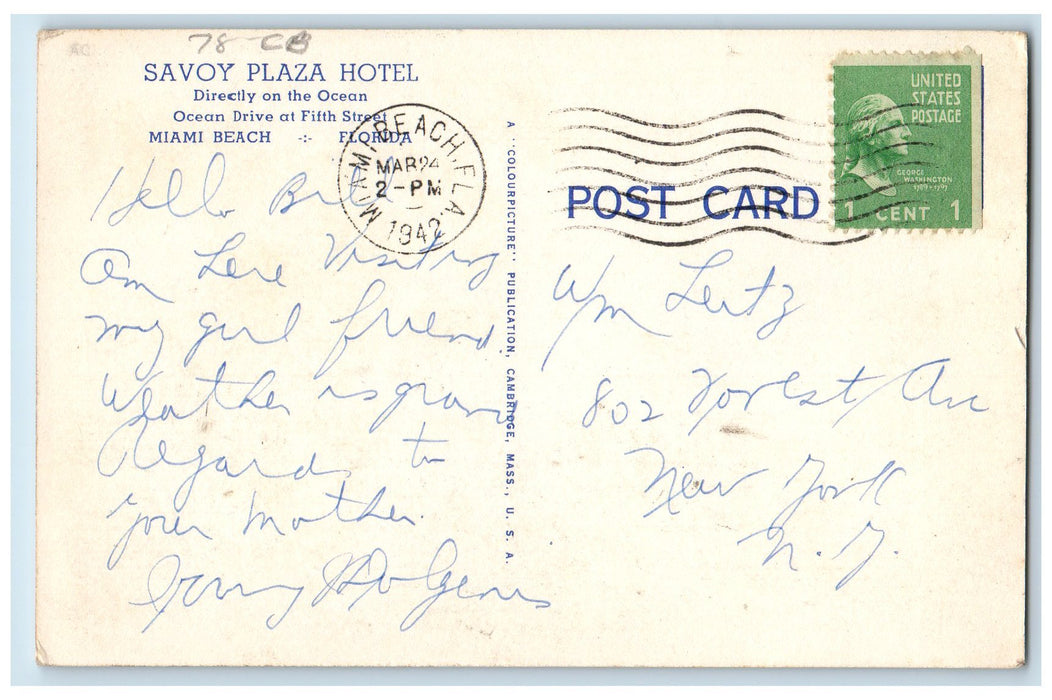 78-CB
SAVOY PLAZA HOTEL
Directly on the Ocean
Ocean Drive at Fifth Street
MIAMI BEACH -:- FLORIDA
MIAMI BEACH, FLA.
MAR 24
2-PM
1942
UNITED
STATES
POSTAGE
GEORGE
WASHINGTON
1789-1797
1 CENT 1
POST CARD
A "COLOURPICTURE" PUBLICATION, CAMBRIDGE, MASS., U. S. A.
Hello Bill
Am here visiting
my girl friend.
Weather is grand
Regards to
your mother.
Wm Lentz
802 Forest Ave
New York
N. Y.